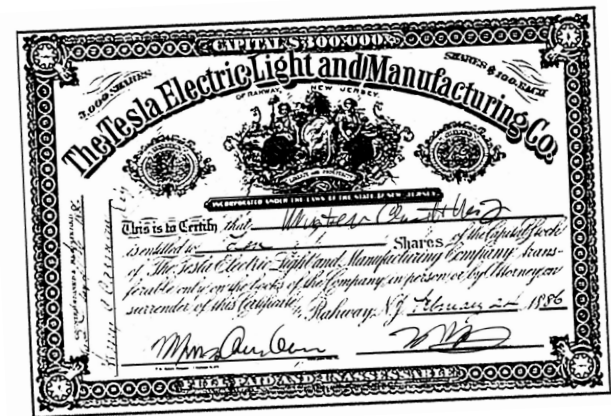 CAPITAL $300,000.
3,000 SHARES
SHARES $100 EACH
The Tesla Electric Light and Manufacturing Co.
OF RAHWAY, NEW JERSEY.
LIBERTY AND PROSPERITY
INCORPORATED UNDER THE LAWS OF THE STATE OF NEW JERSEY.
This is to Certify that
is entitled to Ten Shares of the Capital Stock
of The Tesla Electric Light and Manufacturing Company, trans-
ferable only on the books of the Company, in person or by Attorney, on
surrender of this Certificate. Rahway, N.J. February 1886
FULL PAID AND UNASSESSABLE